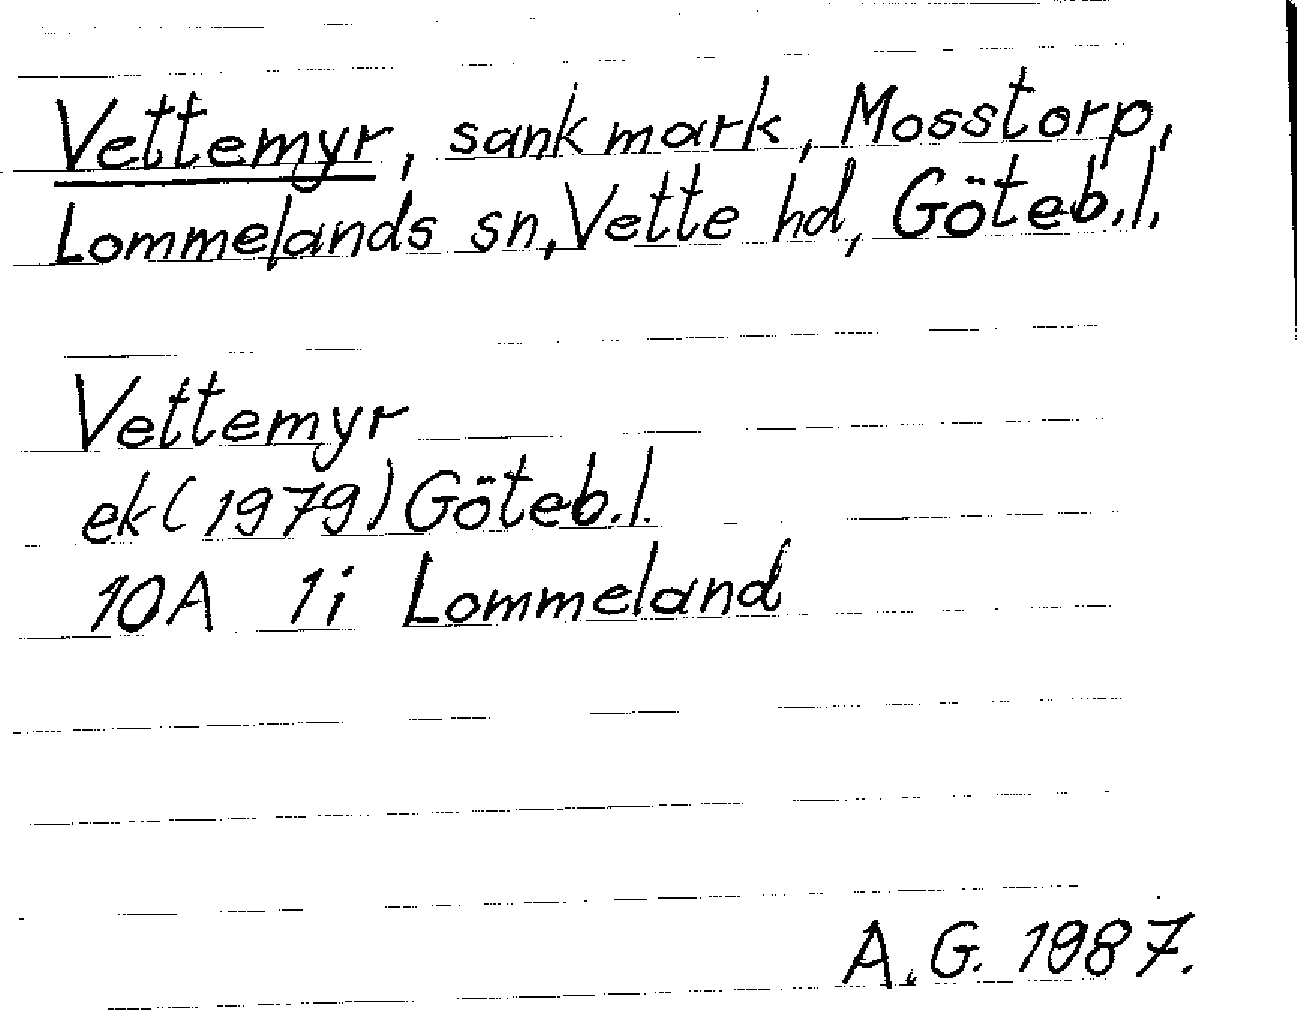 Vettemyr, sank mark, Mosstorp,
Lommelands sn, Vette hd, Göteb.l.
Vettemyr
ek (1979) Göteb.l.
10A 1i Lommeland
A.G. 1987.